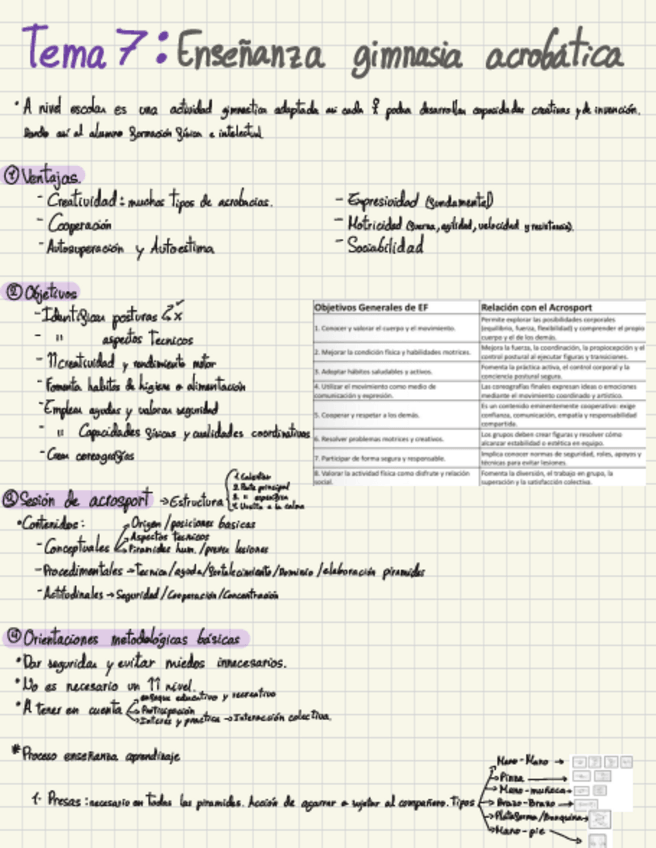 Tema 7: Enseñanza gimnasia acrobática
• A nivel escolar es una actividad gimnastica adaptada así cada podra desarrollar capacidades creativas y de invención.
dando así al alumno formación física e intelectual.
① Ventajas.
- Creatividad: muchos tipos de acrobacias.
- Cooperación
- Autosuperación y Autoestima
- Expresividad (fundamental)
- Motricidad (fuerza, agilidad, velocidad y resistencia).
- Sociabilidad
② Objetivos
- Identificar posturas ✓ x
- " aspectos Tecnicos
- ↑↑ creatividad y rendimiento motor
- Fomenta habitos de higiene o alimentación
- Emplear ayudas y valorar seguridad
- " Capacidades físicas y cualidades coordinativas
- Crear coreografías
Objetivos Generales de EF | Relación con el Acrosport
1. Conocer y valorar el cuerpo y el movimiento. | Permite explorar las posibilidades corporales (equilibrio, fuerza, flexibilidad) y comprender el propio cuerpo y el de los demás.
2. Mejorar la condición física y habilidades motrices. | Mejora la fuerza, la coordinación, la propiocepción y el control postural al ejecutar figuras y transiciones.
3. Adoptar hábitos saludables y activos. | Fomenta la práctica activa, el control corporal y la conciencia postural segura.
4. Utilizar el movimiento como medio de comunicación y expresión. | Las coreografías finales expresan ideas o emociones mediante el movimiento coordinado y artístico.
5. Cooperar y respetar a los demás. | Es un contenido eminentemente cooperativo: exige confianza, comunicación, empatía y responsabilidad compartida.
6. Resolver problemas motrices y creativos. | Los grupos deben crear figuras y resolver cómo alcanzar estabilidad o estética en equipo.
7. Participar de forma segura y responsable. | Implica conocer normas de seguridad, roles, apoyos y técnicas para evitar lesiones.
8. Valorar la actividad física como disfrute y relación social. | Fomenta la diversión, el trabajo en grupo, la superación y la satisfacción colectiva.
③ Sesión de acrosport → Estructura
1. Calentar
2. Parte principal
3. " especifica
4. Vuelta a la calma
• Contenidos:
- Conceptuales
Origen / posiciones basicas
Aspectos tecnicos
Piramides hum. / prever lesiones
- Procedimentales → Tecnica / ayuda / fortalecimiento / Dominio / elaboración piramides
- Actitudinales → Seguridad / Cooperación / Concentración
④ Orientaciones metodológicas básicas
• Dar seguridad y evitar miedos innecesarios.
• No es necesario un ↑↑ nivel.
• A tener en cuenta
enfoque educativo y recreativo
Participación
Interes y practica → Interacción colectiva.
* Proceso enseñanza aprendizaje
1. Presas: necesario en todas las piramides. Acción de agarrar o sujetar al compañero. Tipos
Mano-Mano →
Pinza →
Mano-muñeca →
Brazo-Brazo →
Plataforma/Banquina →
Mano-pie →